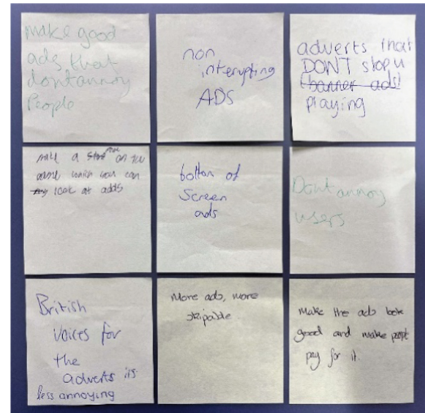 make good
ads that
dont annoy
People
non
interupting
ADS
adverts that
DONT stop u
(banner ads)
playing
make a on
advert were you can
look at adds
bottom of
Screen
ads
Dont annoy
users
British
voices for
the
adverts its
less annoying
More ads, more
skipable
Make the ads look
good and make peopl
pay for it.